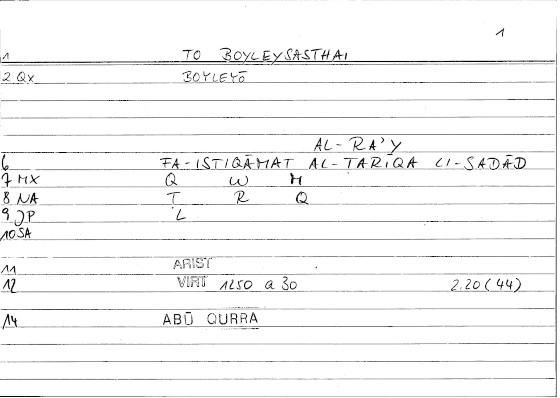 1
1 TO BOYLEYSASTHAI
2 QX BOYLEYŌ
AL-RA'Y
6 FA-ISTIQĀMAT AL-TARĪQA LI-SADĀD
7 MX Q W M
8 NA T R Q
9 JP L
10 SA
11 ARIST
12 VIRT 1250 a 30 2.20 (44)
14 ABŪ QURRA